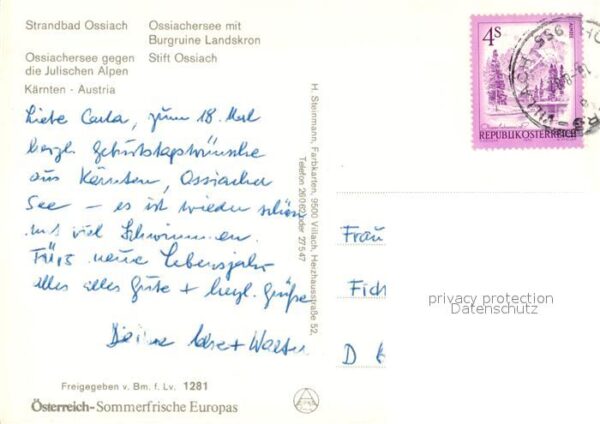 Strandbad Ossiach
Ossiachersee mit
Burgruine Landskron
Ossiachersee gegen
die Julischen Alpen
Stift Ossiach
Kärnten - Austria
Liebe Carla, zum 18. Mal
herzl. Geburtstagswünsche
aus Kärnten, Ossiacher
See - es ist wieder schön
mit viel Schwimmen.
Für's neue Lebensjahr
alles alles Gute + herzl. Grüße
Deine + Walter
Freigegeben v. Bm. f. Lv. 1281
Österreich-Sommerfrische Europas
H. Steinmann, Farbkarten, 9500 Villach, Heizhausstraße 52,
Telefon 26062 oder 27547
4S
REPUBLIK ÖSTERREICH
VILLACH
Frau
Fich
D
privacy protection
Datenschutz